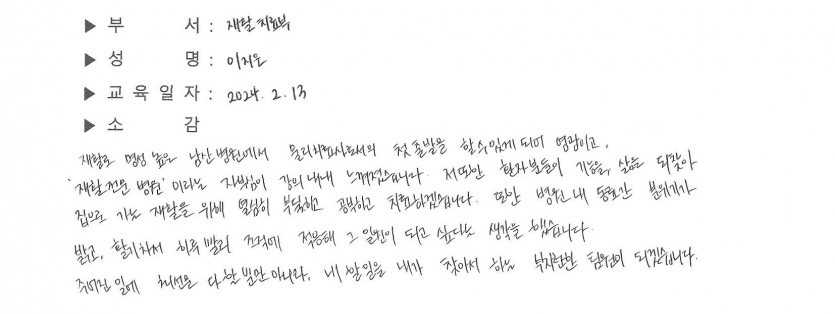 ▶ 부 서 : 재활치료부
▶ 성 명 : 이지은
▶ 교 육 일 자 : 2024. 2. 13
▶ 소 감
재활로 명성 높은 남산병원에서 물리치료사로서의 첫 출발을 할 수 있게 되어 영광이고,
'재활전문 병원' 이라는 자부심이 강의 내내 느껴졌습니다. 저 또한 환자분들이 기능을, 삶을 되찾아
집으로 가는 재활을 위해 열심히 부딪히고 공부하고 치료하겠습니다. 또한 병원 내 동료간 분위기가
밝고, 활기차서 하루 빨리 조직에 적응해 그 일원이 되고 싶다는 생각을 했습니다.
주어진 일에 최선을 다할 뿐만 아니라, 내 할 일을 내가 찾아서 하는 부지런한 팀원이 되겠습니다.